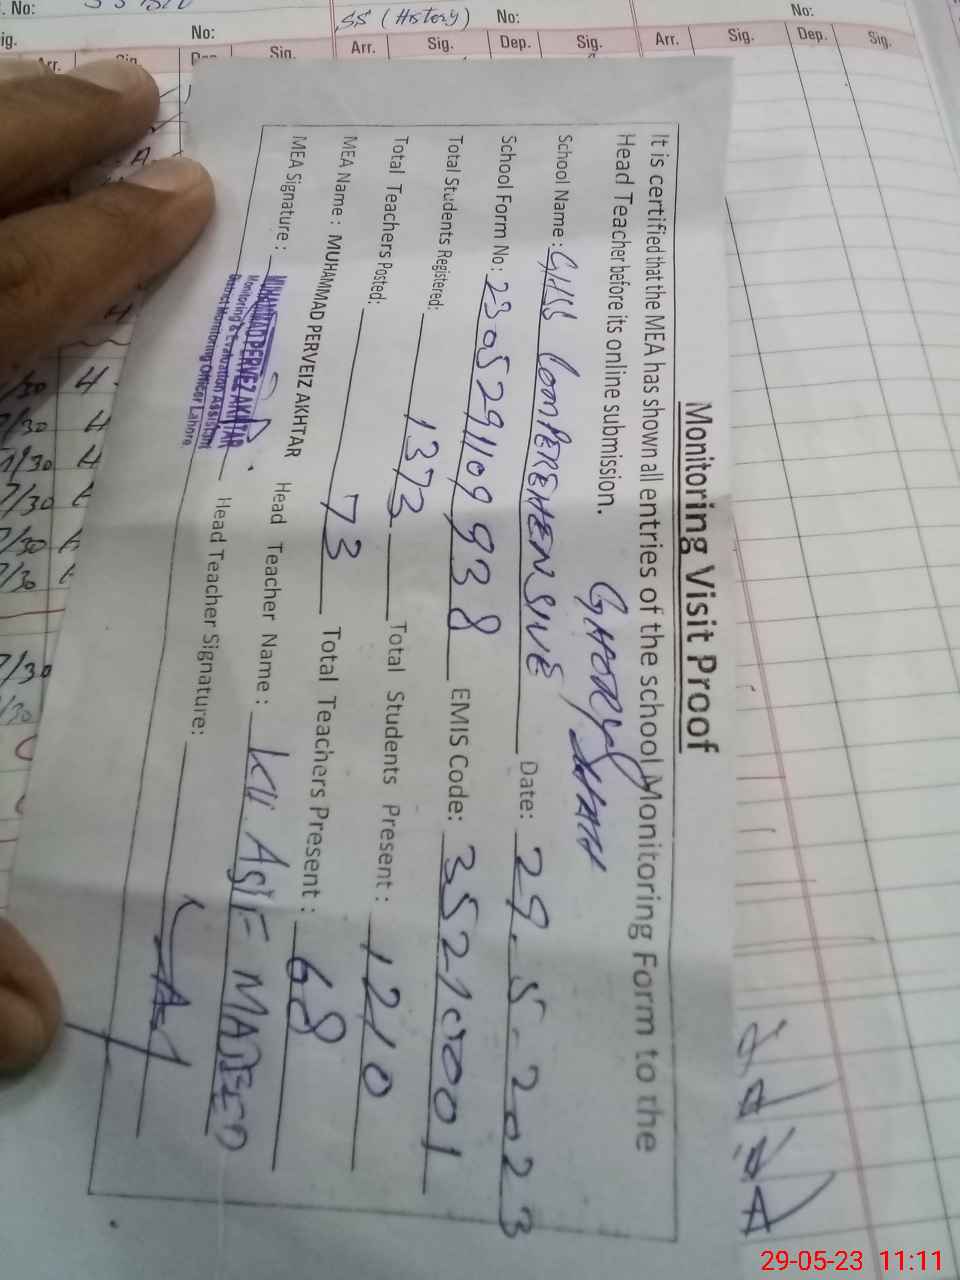 SS (History) No:
No:
No:
No:
Arr. Sig. Dep. Sig. Arr. Sig. Dep. Sig.
Monitoring Visit Proof
It is certified that the MEA has shown all entries of the school Monitoring Form to the
Head Teacher before its online submission.
School Name: GHSS COMPEREHENSIVE GHORY SHAH Date: 29-5-2023
School Form No: 2305291109938 EMIS Code: 35210001
Total Students Registered: 1373 Total Students Present: 1210
Total Teachers Posted: 73 Total Teachers Present: 68
MEA Name: MUHAMMAD PERVEIZ AKHTAR Head Teacher Name: KH. ASIF MAJEED
MEA Signature: Head Teacher Signature:
MUHAMMAD PERVEZ AKHTAR
Monitoring & Evaluation Assistant
District Monitoring Officer Lahore
29-05-23 11:11